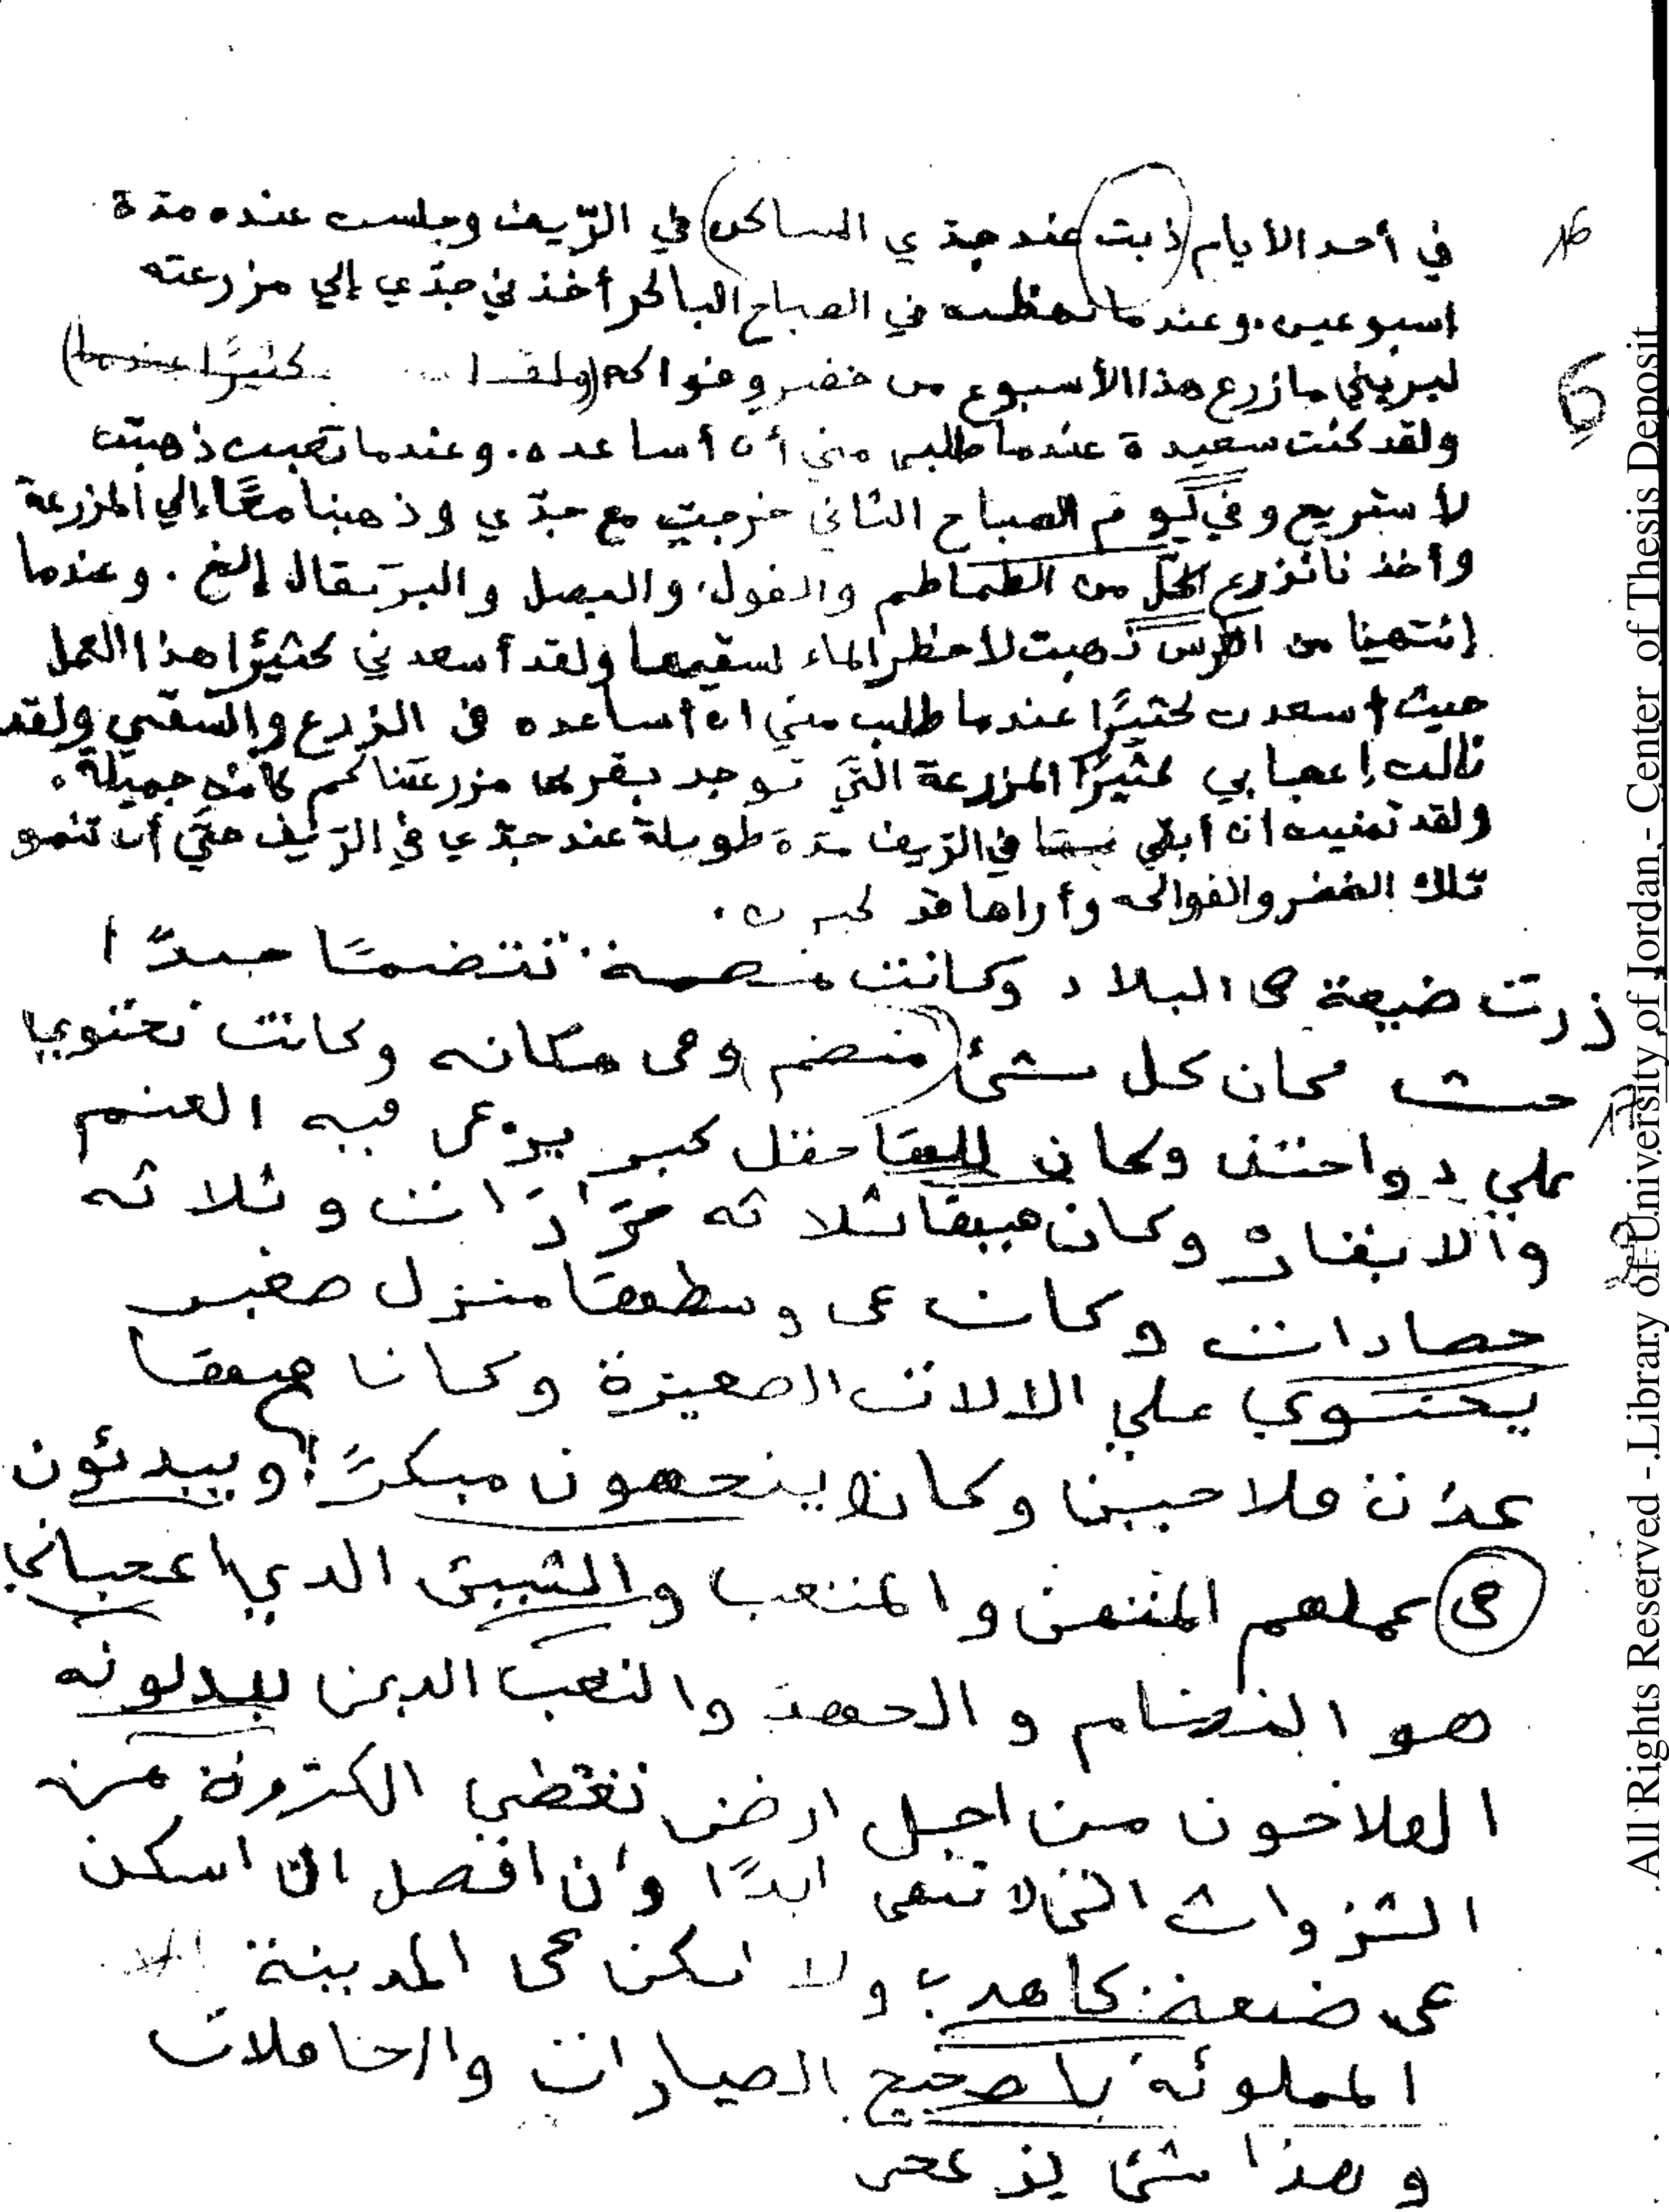 في أحد الأيام ذبت عند جدّي الساكن في الرّيف وجلست عنده مدّة
اسبوعين. وعندما نهظت في الصباح الباكر أخذني جدّي إلي مزرعته
ليريني مازرع هذا الأسبوع من خضر وفواكه (ولقد كثيرًا عندما)
ولقد كنت سعيدة عندما طلب مني أن أساعده. وعندما تعبت ذهبت
لأستريح وفي ليوم الصباح الثاني خرجت مع جدّي وذهبنا معًا إلي المزرعة
وأخذنا نزرع لكلّ من الطماطم والفول، والبصل والبرتقال إلخ. وعندما
إنتهينا من ذهبت لاحظر الماء لسقيها ولقد أسعدني كثيرًا هذا العمل
حيث أسعدت كثيرًا عندما طلب مني ان أساعده في الزرع والسقي ولقد
نالت إعجابي كثيرًا المزرعة التّي توجد بقربها مزرعتنا كم كانت جميلة.
ولقد تمنيت ان أبقي في الرّيف مدّة طويلة عند جدّي في الرّيف حتّي أن تنمو
تلك الخضر والفواكه وأراها قد كبرت.
زرت ضيعة في البلاد وكانت تنضمًا جدًا
حيث كان كل شئ منضم وفي مكانه وكانت تحتوي
علي دواجن وكان للها حقل كبير يرعى فيه الغنم
والابقار وكان فييها ثلاثه جرّارات وثلاثه
حصادات وكان في وسطهها منزل صغير
يحتوي علي الالات الصغيرة وكانا فيهها
عدّت فلاحيين وكانو ينحضون مبكرًا ويبدئون
في عملهم المتقن والمتعب والشيئ الدي اعجباني
هو النضام والجهد والتعب الدين يبدلونه
الفلاحون من اجل ارض تغطي الكثرة من
الثروات التي لا تنتهي ابدًا وأن افضل ان اسكن
في ضيعة كاهدي ولا اسكن في المدينة
المملوئة باضجيج الصيارات والحافلات
وهذا شئ يزعجى
16
6
All Rights Reserved - Library of University of Jordan - Center of Thesis Deposit